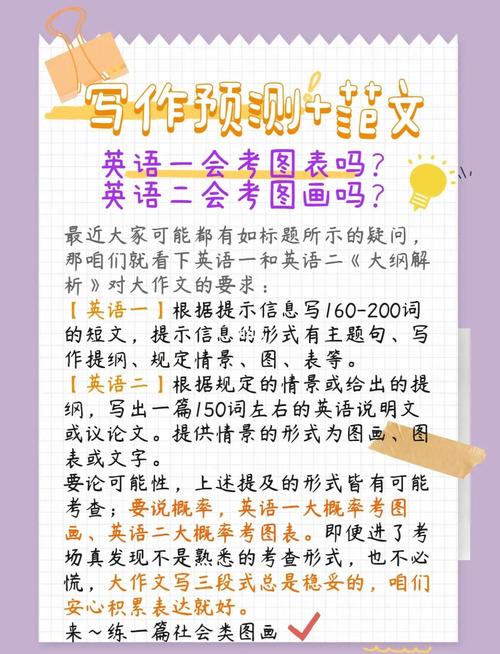 写作预测+范文
英语一会考图表吗?
英语二会考图画吗?
最近大家可能都有如标题所示的疑问,
那咱们就看下英语一和英语二《大纲解
析》对大作文的要求:
【英语一】根据提示信息写160-200词
的短文,提示信息的形式有主题句、写
作提纲、规定情景、图、表等。
【英语二】根据规定的情景或给出的提
纲,写出一篇150词左右的英语说明文
或议论文。提供情景的形式为图画、图
表或文字。
要论可能性,上述提及的形式皆有可能
考查;要说概率,英语一大概率考图
画、英语二大概率考图表。即便进了考
场真发现不是熟悉的考查形式,也不必
慌,大作文写三段式总是稳妥的,咱们
安心积累表达就好。
来~练一篇社会类图画